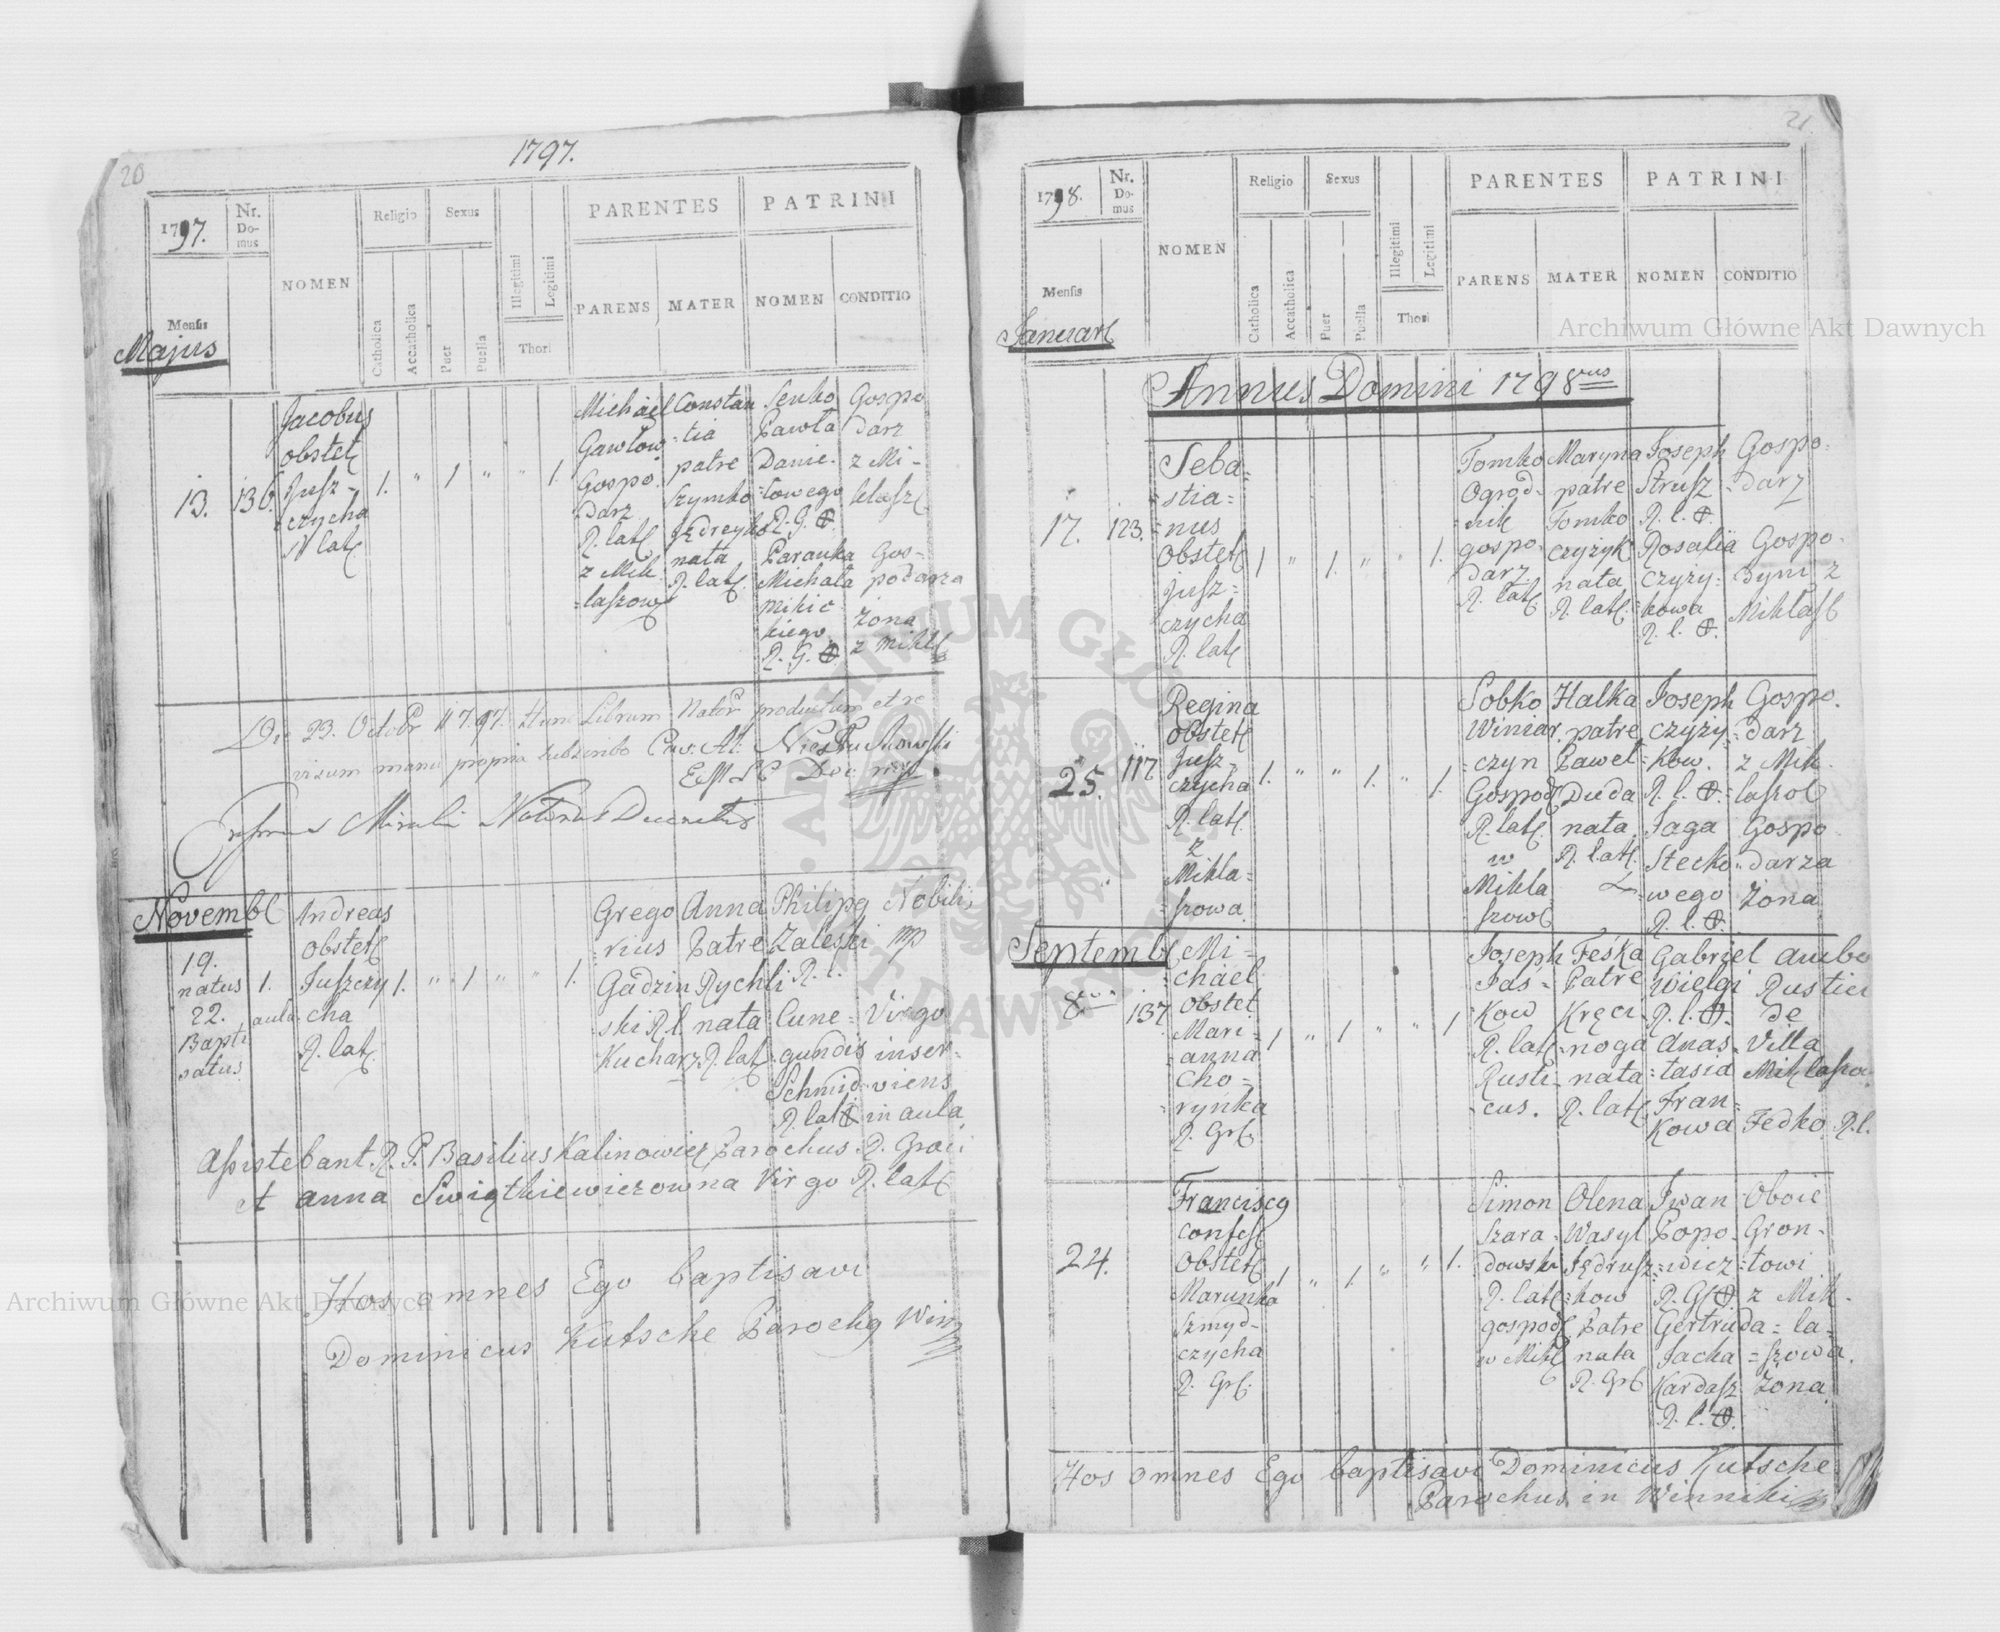 20
1797.
1797.
Nr. Domus
NOMEN
Religio
Sexus
PARENTES
PATRINI
Catholica
Accatholica
Puer
Puella
Illegitimi
Legitimi
Thori
PARENS
MATER
NOMEN
CONDITIO
Mensis
Majus
13.
136.
Jacobus
obstet
Jusz-
czycha
R lat
1. " 1 " " 1.
Michael
Gawłow
Gospo.
darz
R. lat
z Mik
=laszow
Constan
=tia
patre
Szymko
Jędreyko
nata
R. lat
Senko
Pawła
Danie.
=lowego
R. G.
Paranka
Michała
mikic
kiego
R. G.
Gospo
darz
z Mi-
klasz
Gos-
podarza
żona
z mikl
Die 23. Octobr 1797. Hunc Librum Nator productum et re
visum manu propria subscribo
Novembl
19.
natus
22.
Bapti
satus
1.
aula
Andreas
obstet
Juszczy
cha
R. lat
1. " 1 " " 1.
Grego
=rius
Gadzin
ski R l
Kucharz
Anna
Patre
Rychli
nata
R. lat
Philipg
Zaleski
R. l.
Cune=
=gundis
Schmid
R. lat
Nobilis
mp
Virgo
inser=
viens
in aula
Assistebant R. P. Basilius Kalinowicz Parochus R. Graci
et Anna Swiątkiewiczowna Virgo R. lat
Hos omnes Ego baptisavi
Dominicus Kutsche Parochg Winz
21.
1798.
Nr. Domus
NOMEN
Religio
Sexus
PARENTES
PATRINI
Catholica
Accatholica
Puer
Puella
Illegitimi
Legitimi
Thori
PARENS
MATER
NOMEN
CONDITIO
Mensis
Januari
Annus Domini 1798vus
17.
123.
Seba=
=stia=
=nus
Obstet
jusz=
czycha
R. lat
1 " 1. " " 1.
Tomko
Ogrod-
nik
gospo-
darz
R. lat
Maryna
patre
Tomko
czyżyk
nata
R. lat
Joseph
Strusz
R. l.
Rosalia
Czyży=
=kowa
R. l.
Gospo=
=darz
Gospo-
dyni z
Miklasz
25.
117.
Regina
obstet
Jusz=
czycha
R. lat
z
Mikla=
=szowa
1. " " 1. " 1.
Sobko
Winiar
=czyn
Gospod
R. lat
w
Mikla
szow
Halka
patre
Pawel
Duda
nata
R. lat.
Joseph
czyży=
=kow.
R. l.
Jaga
Stecko=
=wego
R. l.
Gospo.
darz
z Mik-
=laszo
Gospo
darza
żona
Septembl
8
137
Mi=
=chael
obstet
Mari=
=anna
Cho=
=ryńka
R. Gr
1 " 1 " " 1
Joseph
Jaś=
Kow
R. lat
Rusti
=cus.
Feśka
Patre
Kręci-
=noga
nata
R. lat
Gabriel
Wielgi
R. l.
Anas=
=tasia
Fran=
Kowa
ambo
Rustici
de
Villa
Miklaszow
Fedko R. l.
24.
Francisg
confess
Obstet
Marunka
Szmyd-
czycha
R. Gr.
1 " 1. " " 1.
Simon
Szara=
dowski
R. lat
gospod
w Mikl
Olena
Wasyl
Jędrusz=
=kow
Patre
nata
R. Gr
Iwan
Popo=
=wicz
R. G
Gertruda
Jacka
Kardasz
R. l.
Oboie
Gron-
=towi
z Mik-
=la=
=szowa.
żona
Hos omnes Ego baptisavi Dominicus Kutsche
Parochus in Winniki
Archiwum Główne Akt Dawnych
Archiwum Główne Akt Dawnych
ARCHIWUM GŁÓWNE AKT DAWNYCH